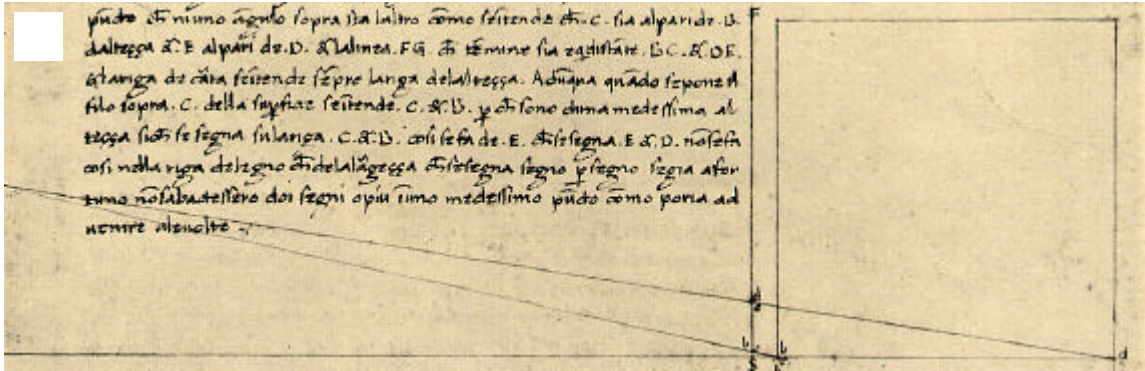 pūcto ch̄ niuno āgulo sopra sta laltro cōmo seitende ch̄ .C. sia alpari de .B.
daltecça & .E alpari de .D. & lalinea .FG. ch̄ tēmine sia eq̄distāte .BC. & DE.
& lariga de cārta seitende sēpre larga delaltecça. Adūqua quādo sepone il
filo sopra .C. della suꝑficie seitende .C. & .B. ꝑ ch̄ sono duna medessima al
tecça sich̄ se segna sulariga .C. & .B. cosi sefa de .E. ch̄ sesegna .E & .D. nōsefa
cosi nella riga delegno ch̄ delalāgecça ch̄ sesegna segno ꝑ segno
nōsabactessero doi segni opiu īuno medessimo pūcto cōmo poria ad
uenire aleuolte
F
d